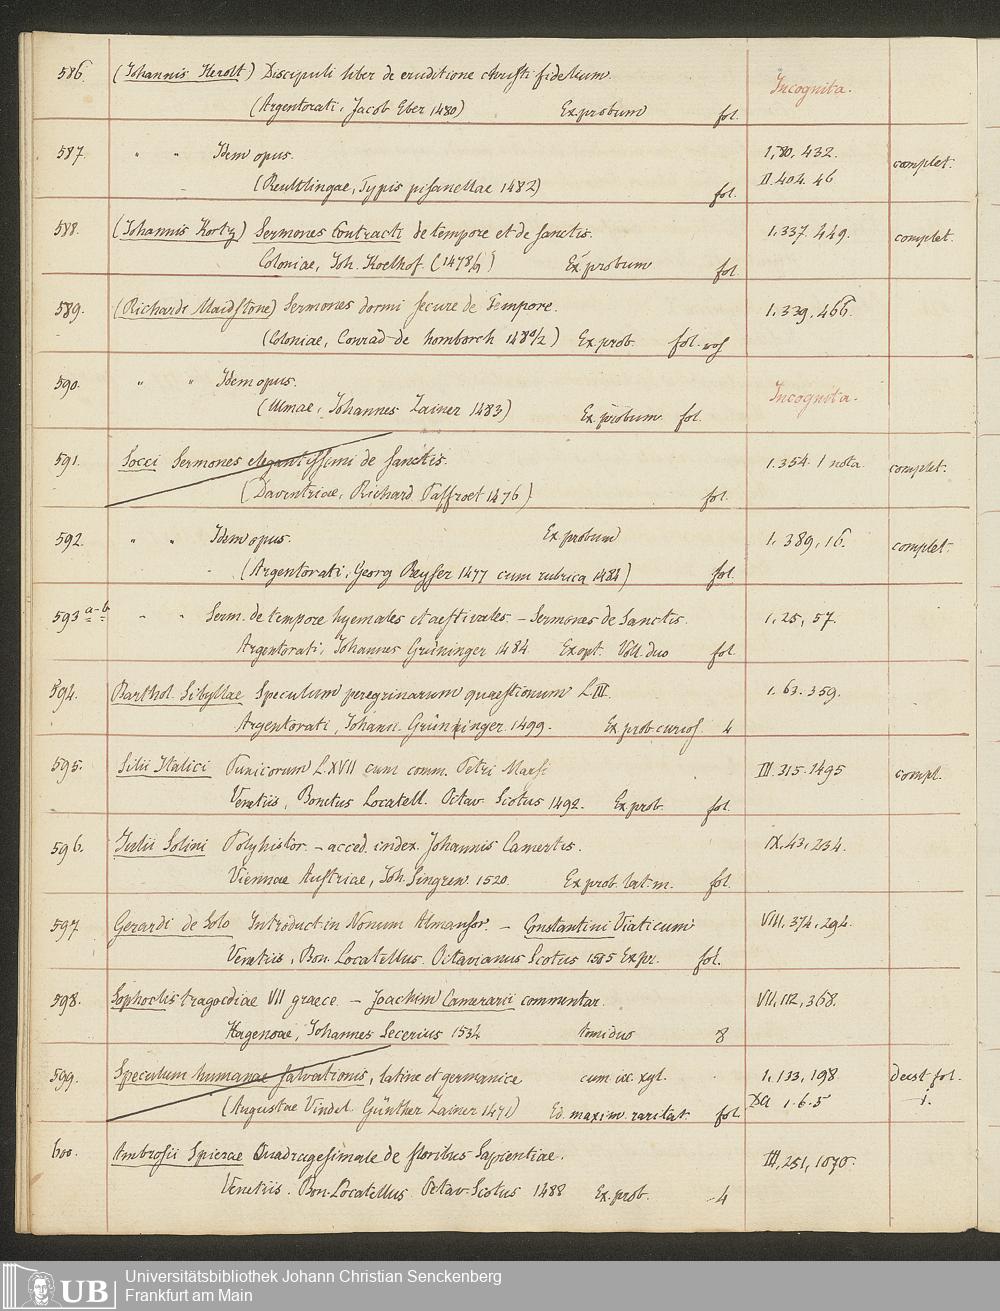 586. (Johannis Herolt) Discipuli liber de eruditione christi fidelium. Incognita.
(Argentorati, Jacob Eber 1480) Ex. probum fol.
587. " " Idem opus. 1, 80. 432. complet.
(Reutlingae, Typis pisanellae 1482) fol. II. 404. 46
588. (Johannis Kortz) Sermones contracti de tempore et de sanctis. 1. 337. 449. complet.
Coloniae, Joh. Koelhof. (1478/9) Ex probum fol.
589. (Richardi Maidstone) Sermones dormi secure de Tempore. 1. 339. 466.
(Coloniae, Conrad de homborch 1480/2) Ex. prob. fol.
590. " " Idem opus. Incognita.
(Ulmae, Johannes Zainer 1483) Ex. probum fol.
591. Socci Sermones elegantissimi de Sanctis. 1. 354. 1 nota. complet.
(Daventriae, Richard Paffroet 1476) fol.
592. " " Idem opus. Ex probum 1. 389, 16. complet.
(Argentorati, Georg Reyser 1477 cum rubrica 1484) fol.
593 a-b " " Serm. de tempore hyemales et aestivales. - Sermones de Sanctis. 1. 25, 57.
Argentorati, Johannes Grüninger 1484 Ex opt. Voll. duo fol.
594. Barthol. Sibyllae Speculum peregrinarum quaestionum L. III. 1. 63. 359.
Argentorati, Johann. Grüninger. 1499. Ex prob. curios. 4
595. Silii Italici Punicorum L. XVII cum comm. Petri Marsi III. 315. 1495 compl.
Venetiis, Bonetus Locatell. Octav Scotus 1492. Ex. prob. fol.
596. Julii Solini Polyhistor. - acced. index. Johannis Camertis. IX. 43, 234.
Viennae Austriae, Joh. Singren. 1520. Ex prob. lat. m. fol.
597 Gerardi de Solo Introduct. in Nonum Almansor. - Constantini Viaticum VIII. 374, 294.
Venetiis, Bon. Locatellus. Octavianus Scotus 1505 Ex pr. fol.
598. Sophoclis tragoediae VII graece. - Joachim Camerarii commentar. VII, 112, 368.
Hagenoae, Johannes Secerius 1534 tomi duo 8
599. Speculum humanae salvationis, latine et germanice cum ic. xyl. 1. 133, 198 deest fol.
(Augustae Vindel. Günther Zainer 1471) Ed. maxim. raritat. fol. 1. 6. 5 1.
600. Ambrosii Spierae Quadragesimale de floribus Sapientiae. III, 251, 1070.
Venetiis. Bon. Locatellus. Octav. Scotus 1488 Ex. prob. 4
UB
Universitätsbibliothek Johann Christian Senckenberg
Frankfurt am Main